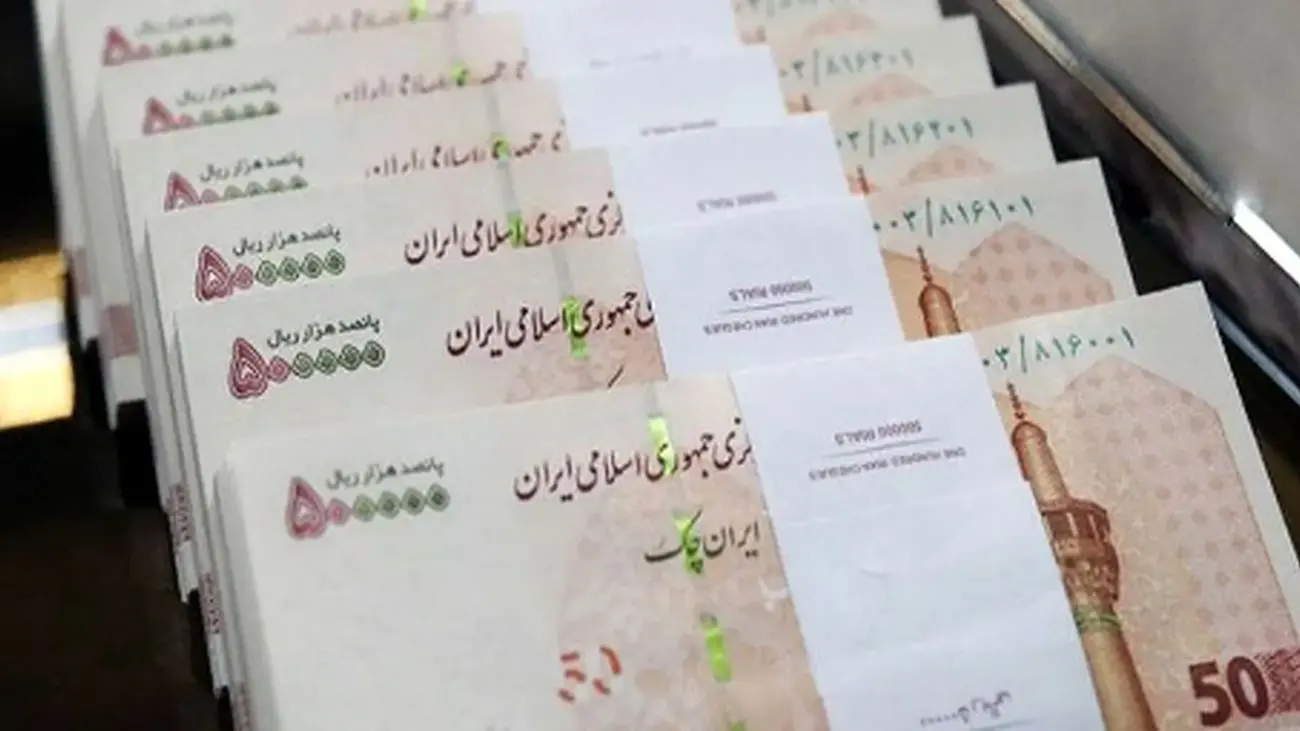 پانصد هزار ریال
۵۰۰۰۰۰
پانصد هزار ریال
۵۰۰۰۰۰
۰۳/۸۱۶۳۰۱
پانصد هزار ریال
۵۰۰۰۰۰
۰۳/۸۱۶۲۰۱
500000 RIALS
پانصد هزار ریال
۵۰۰۰۰۰
جمهوری اسلامی ایران
۰۰۳/۸۱۶۱۰۱
ONE HUNDRED IRAN CHEQUES
500000 RIALS
پانصد هزار ریال
۵۰۰۰۰۰
جمهوری اسلامی ایران
۰۳/۸۱۶۰۰۱
ONE HUNDRED IRAN CHEQUES
500000 RIALS
پانصد هزار ریال
۵۰۰۰۰۰
جمهوری اسلامی ایران
ایران چک
50